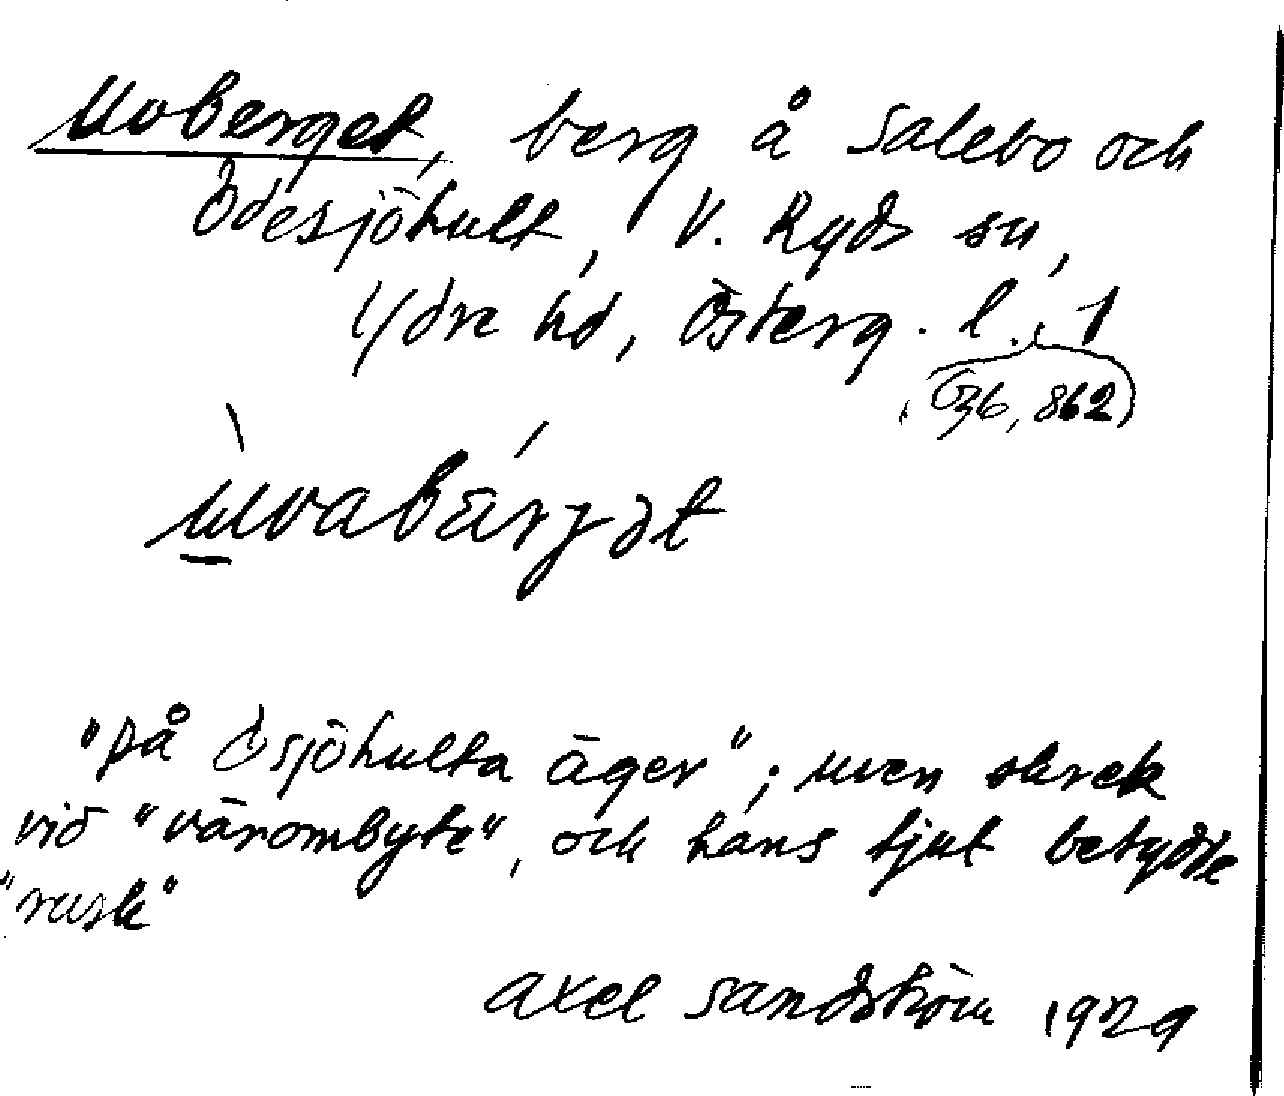 Uvberget, berg å Salebo och
Ödesjöhult, V. Ryds sn,
Ydre hd, Österg. l. 1
(36, 862)
ùvabä́rjət
"på Ösjöhulta äger"; uven skrek
vid "värombyte", och hans tjut betydde
"rusk"
Axel Sandström 1929